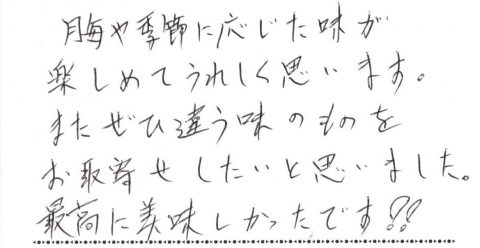 海や季節に応じた味が
楽しめてうれしく思います。
またぜひ違う味のものを
お取寄せしたいと思いました。
最高に美味しかったです!!